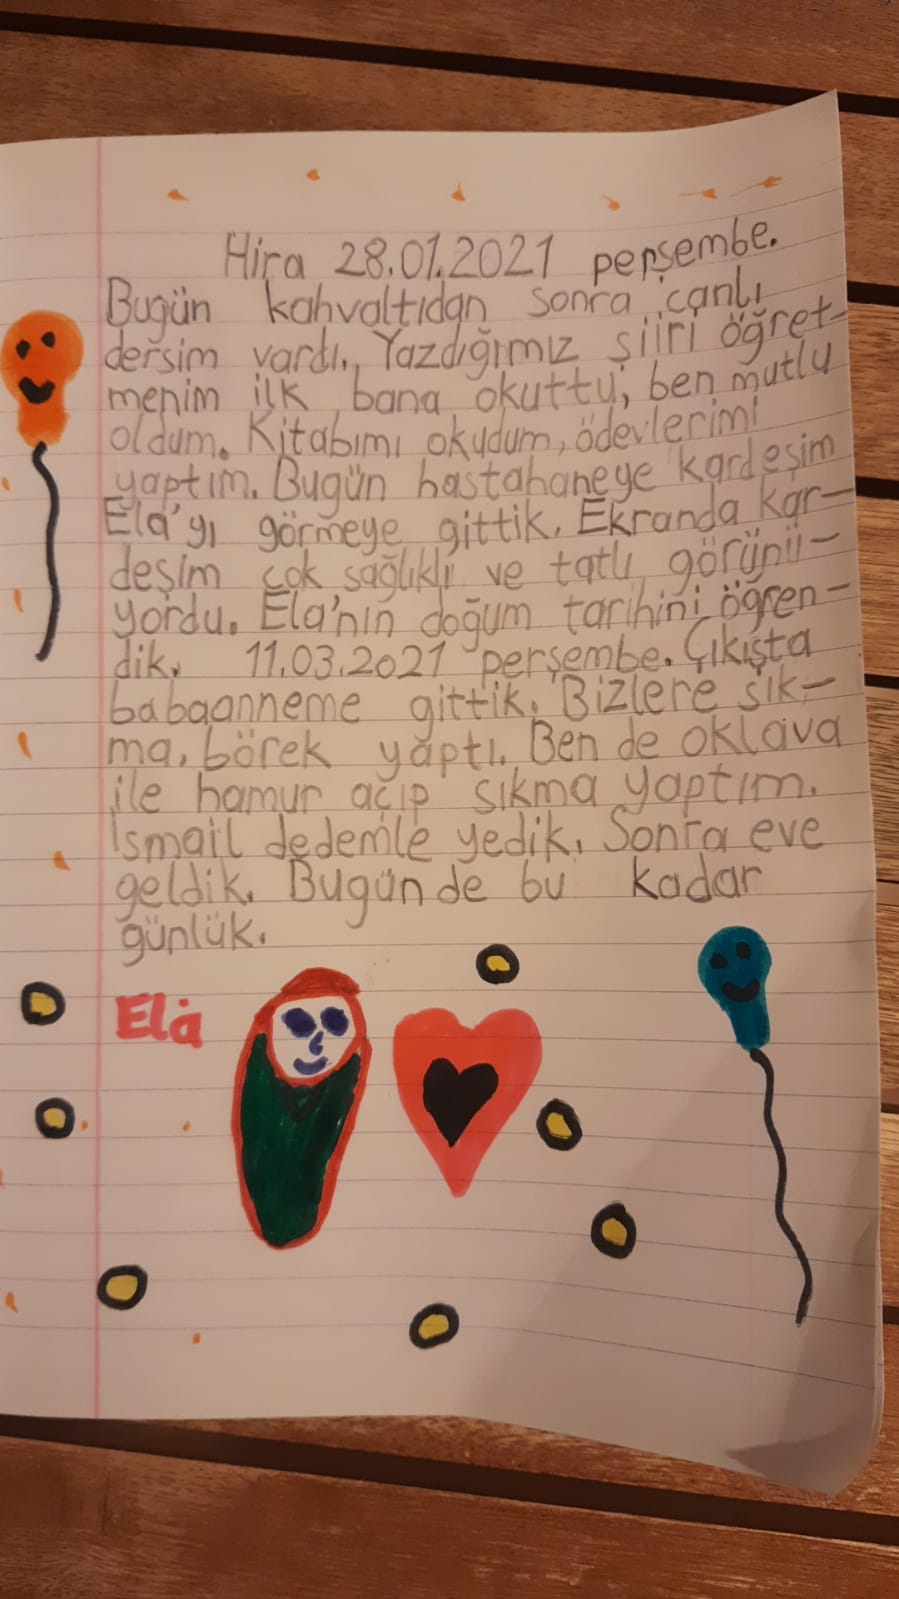 Hira 28.01.2021 perşembe.
Bugün kahvaltıdan sonra canlı
dersim vardı. Yazdığımız şiiri öğret-
menim ilk bana okuttu, ben mutlu
oldum. Kitabımı okudum, ödevlerimi
yaptım. Bugün hastahaneye kardeşim
Ela'yı görmeye gittik. Ekranda kar-
deşim çok sağlıklı ve tatlı görünü-
yordu. Ela'nın doğum tarihini öğren-
dik. 11.03.2021 perşembe. Çıkışta
babaanneme gittik. Bizlere sık-
ma, börek yaptı. Ben de oklava
ile hamur açıp sıkma yaptım.
İsmail dedemle yedik. Sonra eve
geldik. Bugün de bu kadar
günlük.
Ela